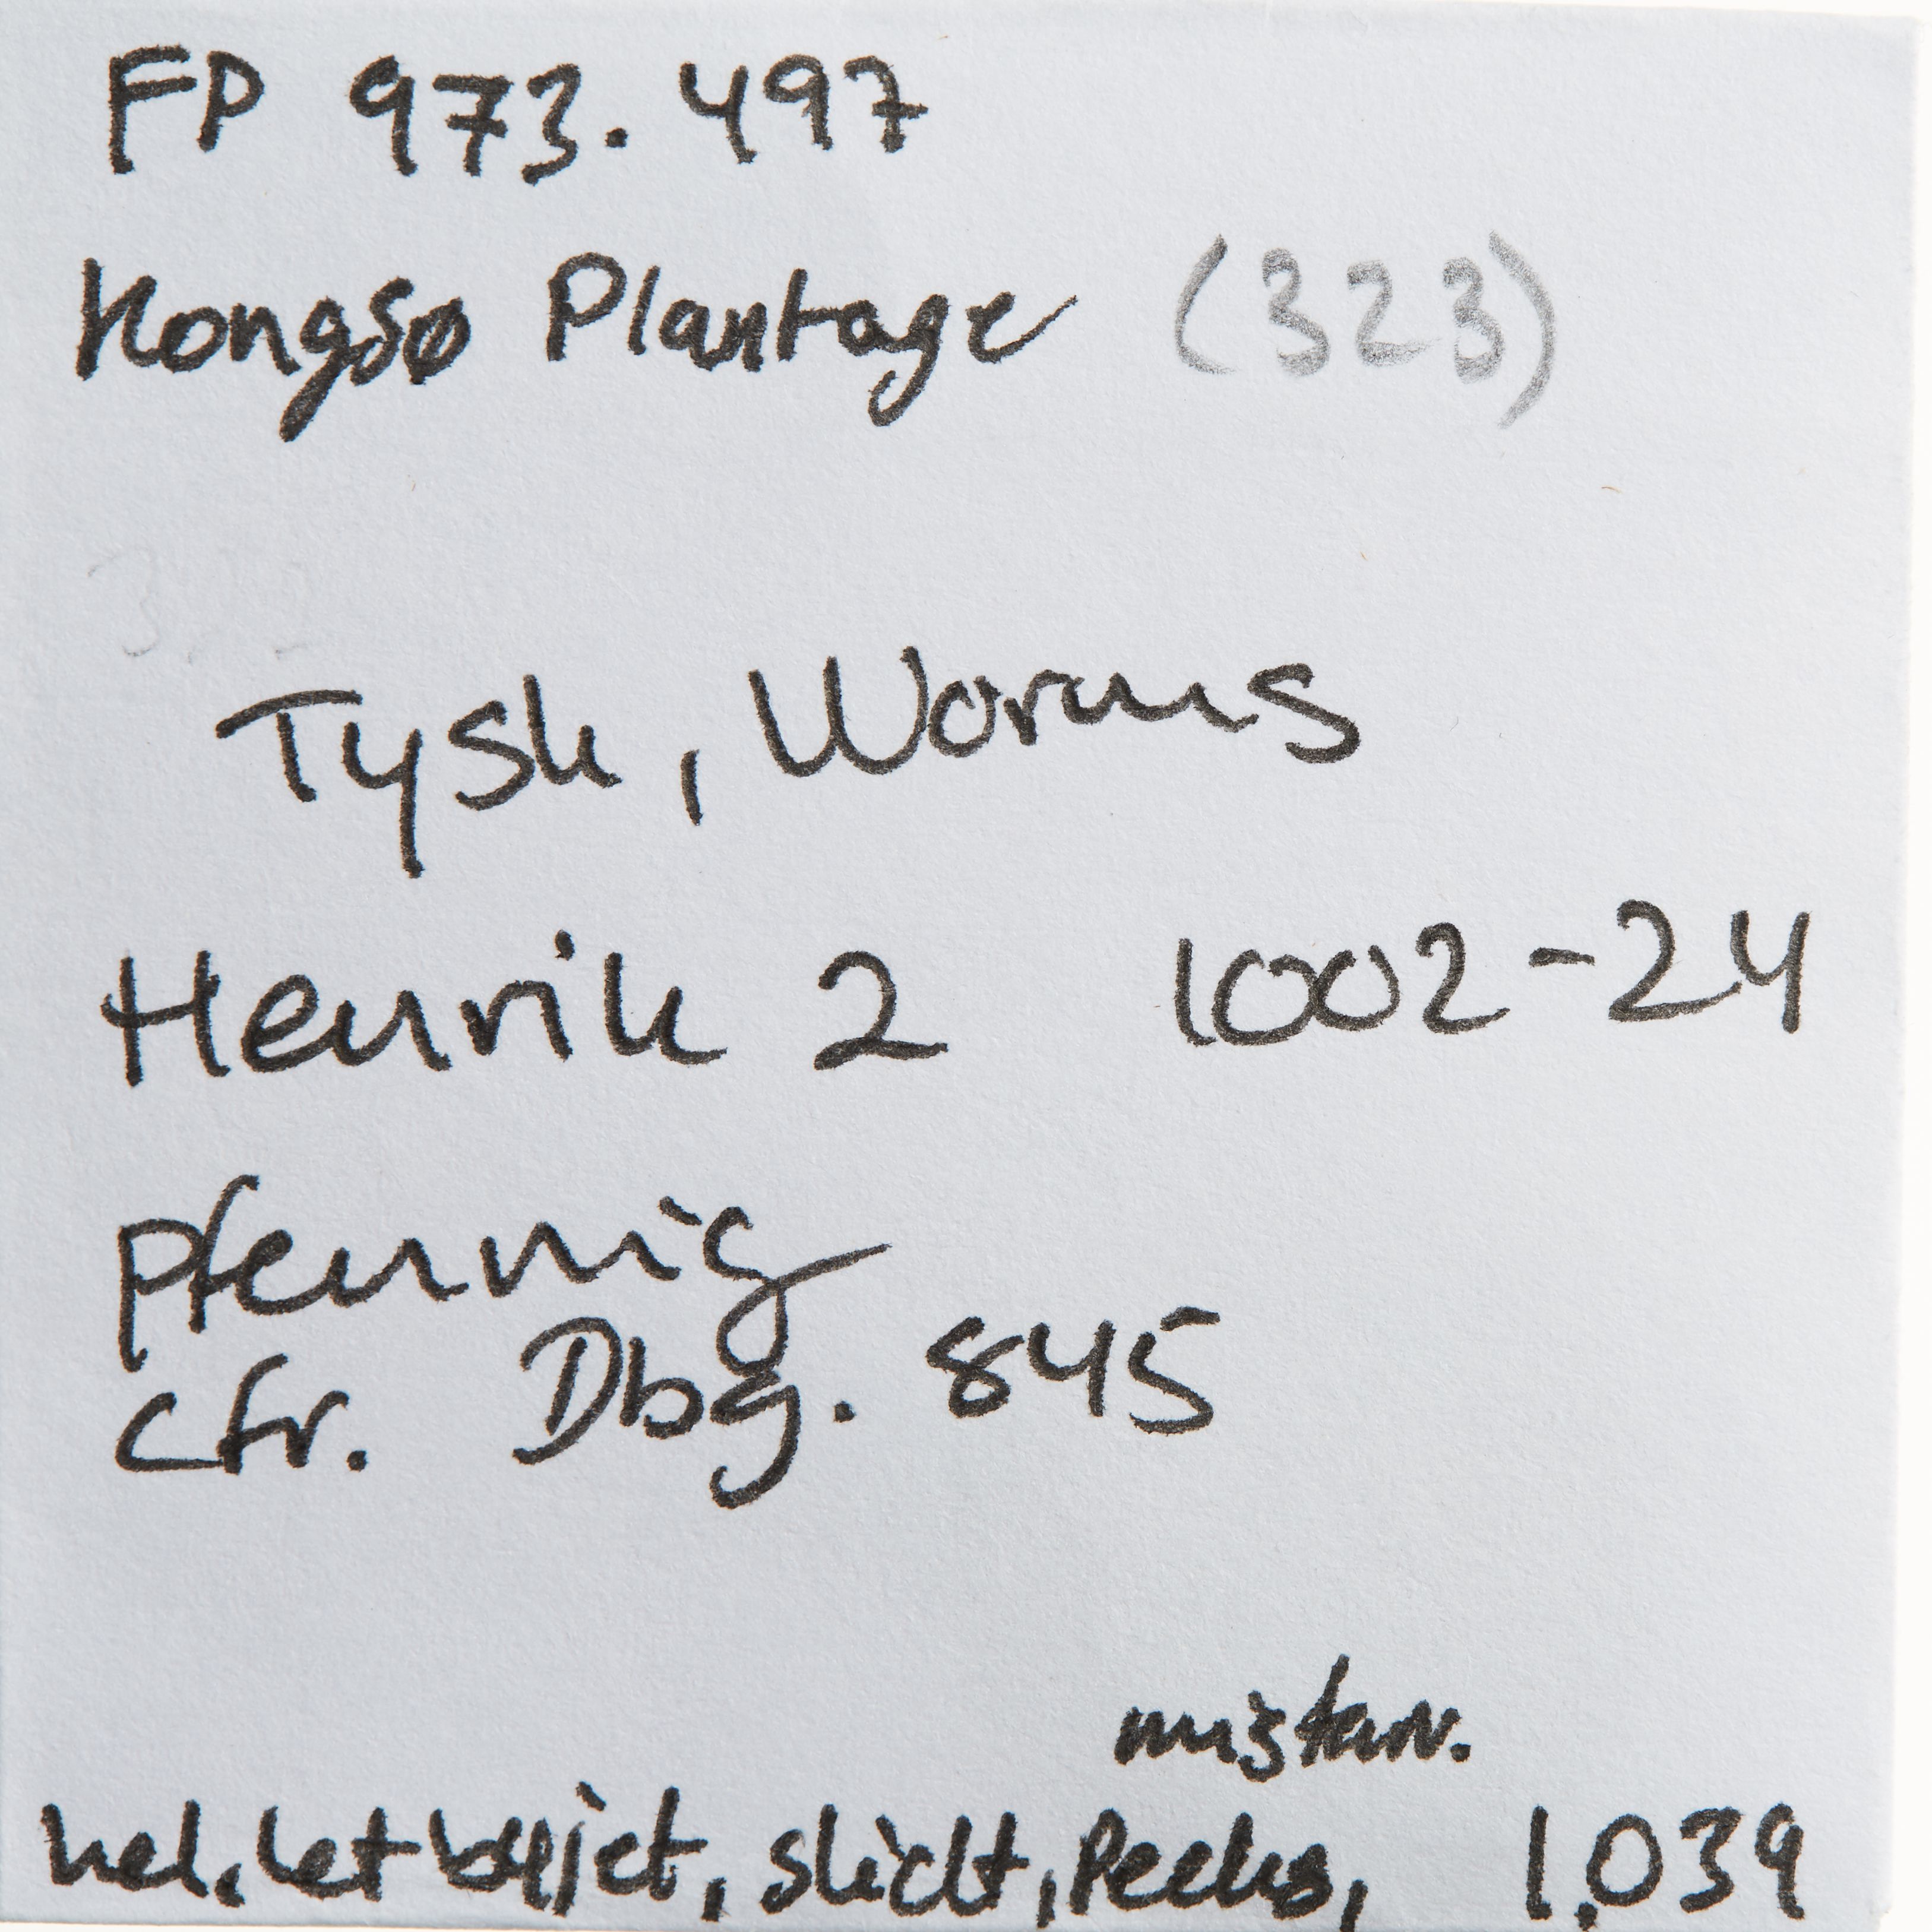 FP 973.497
Kongsø Plantage (323)
Tysk, Worms
Henrik 2 1002-24
Pfennig
cfr. Dbg. 845
misfarv.
hel, let bøjet, slidt, Pecks, 1,039